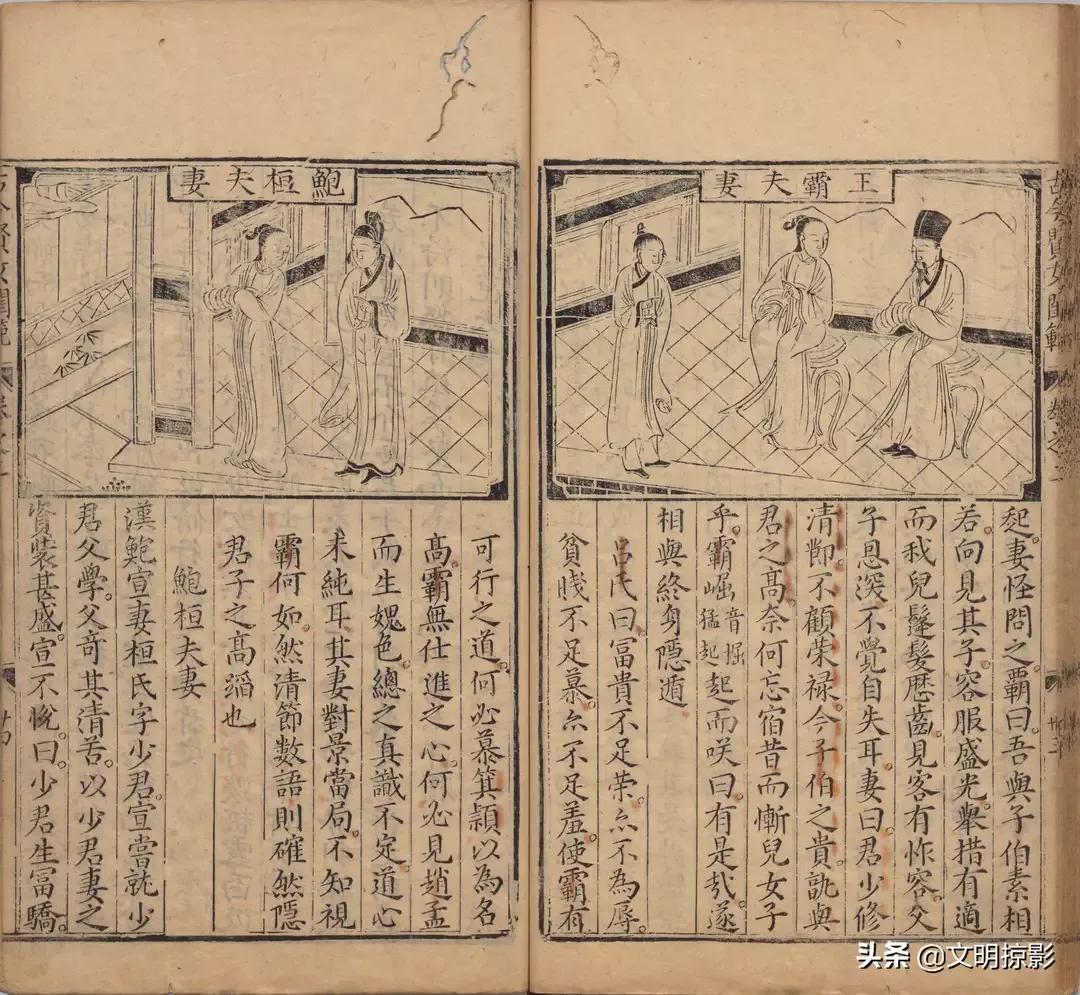 古今賢女閨範 卷之二 廿三
王霸夫妻
起妻怪問之。霸曰。吾與子伯素相
若。向見其子。容服盛光。舉措有適。
而我兒鬔髮歷齒。見客有怍容。父
子恩深。不覺自失耳。妻曰。君少修
清節。不顧榮祿。今子伯之貴。孰與
君之高。奈何忘宿昔而慚兒女子
乎。霸崛音掘猛起起而咲曰。有是哉。遂
相與終身隱遁
呂氏曰。冨貴不足荣。亦不為辱。
貧賤不足慕。亦不足羞。使霸有
可行之道。何必慕箕穎以為名
高。霸無仕進之心。何必見趙孟
而生媿色。總之真識不定。道心
未純耳。其妻對景當局。不知視
霸何如。然清節數語。則確然隱
君子之高蹈也
鮑桓夫妻
鮑桓夫妻
漢鮑宣妻桓氏字少君。宣嘗就少
君父學。父奇其清苦。以少君妻之
資裝甚盛。宣不悅。曰。少君生冨驕。
头条 @文明掠影